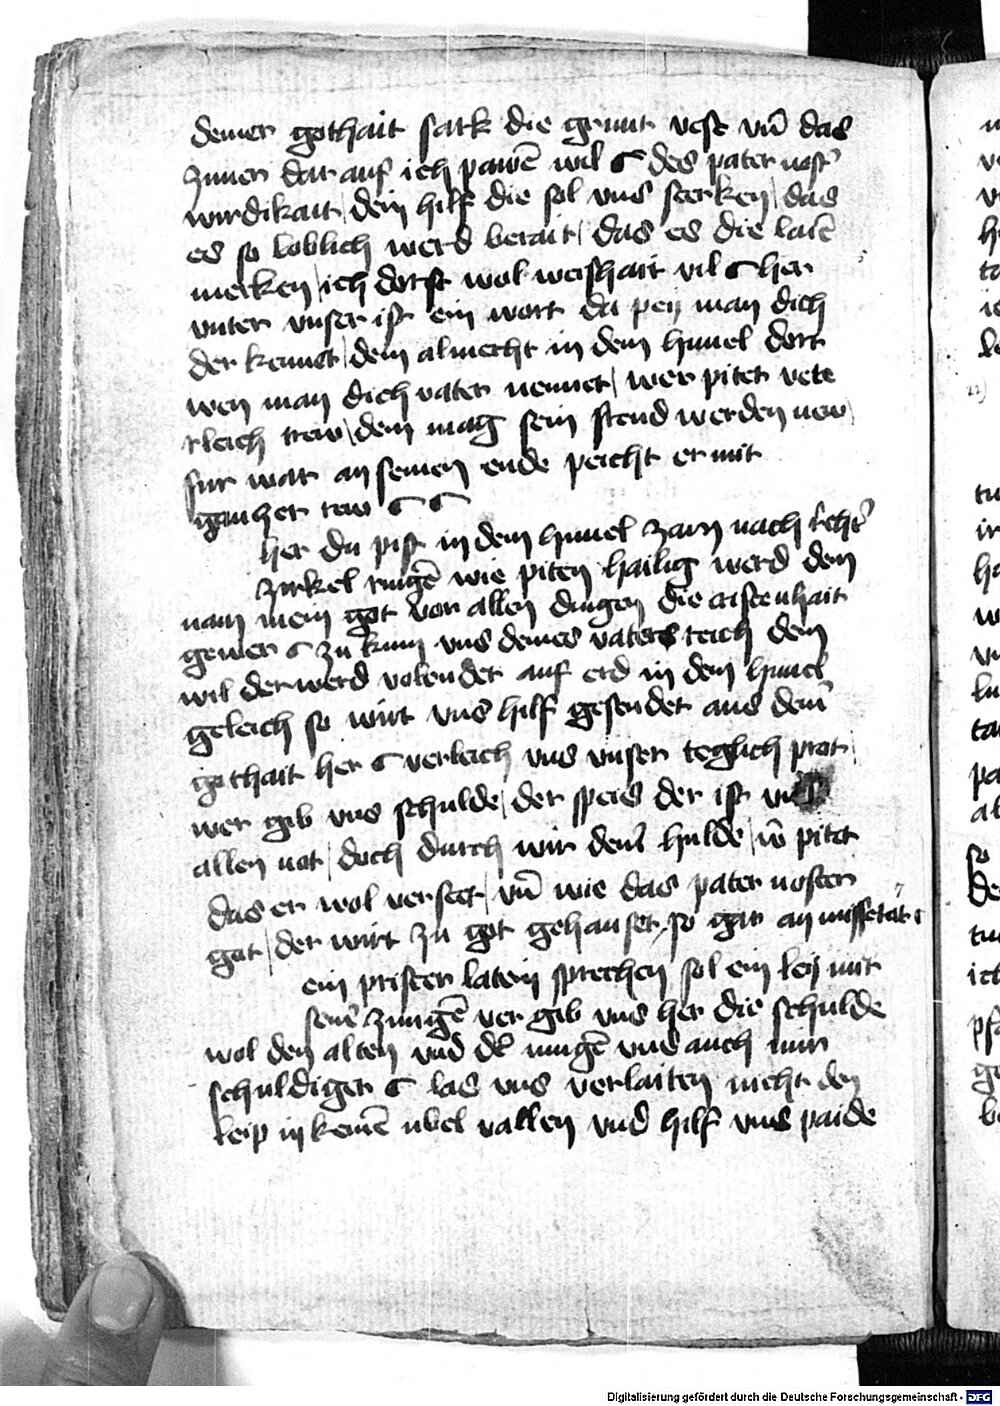 deiner gothait sark die grunt vest vn̄ das
zimer dar auf ich pawē wil des pater nostʼ
wirdikait / dein hilf die sol vns sterken / das
es so loblich werd berait / das es die laiē
merken / ich dorft wol weishait vil her
vnter vnser ist ein wort da peij man dich
der kennet / dein almecht in dem himel dort
wen man dich vater nennet / wer pitet vete
rleich trew / dem mag sein frend werden new /
fur war an seinem ende peicht er mit
ganzer rew
her du pist in dem himel zarn nach rechtʼ
zirkel ringē wie piten hailig werd dein
nam mein got vor allen dingen die cristenhait
gemer zu kum vns deines vaters reich dein
wil der werd volendet auf erd in dem himel
geleich so wirt vns hilf gesendet aus deinʼ
gothait her verleich vns vnser teglich prot /
wer gib vns schulde / der speis der ist
allen not / doch durch wir deinʼ hulde / w̄ pitet
das er wol verstet / vn̄ wie das pater noster
gat / der wirt zu got gehauset so gar an missetat
ein prister latein sprechen sol ein leij mit
seinʼ zungē ver gib vns her die schulde
wol den alten vnd dē iungē vns auch mir
schuldiger las vns verlaiten nicht den
leip in keinē vbel vallen vnd hilf vns paide
Digitalisierung gefördert durch die Deutsche Forschungsgemeinschaft - DFG